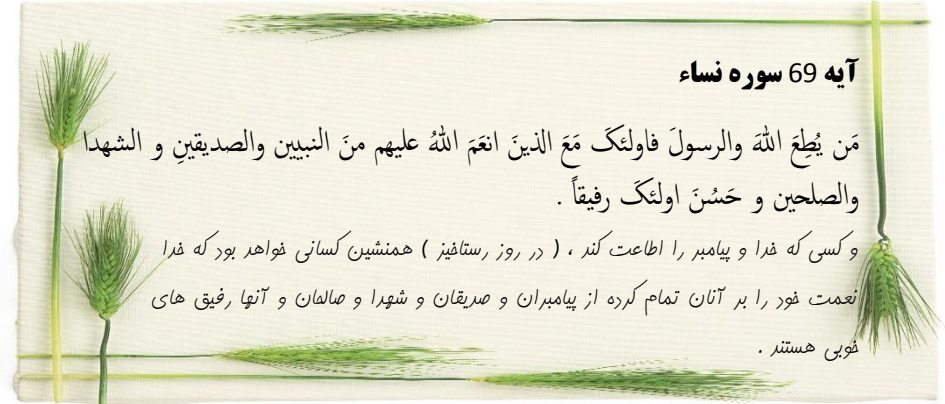 آیه 69 سوره نساء
مَن یُطِعَ اللهَ والرسولَ فاولئکَ مَعَ الذینَ انعَمَ اللهُ علیهم منَ النبیین والصدیقینِ و الشهدا
والصلحین و حَسُنَ اولئکَ رفیقاً .
و کسی که خدا و پیامبر را اطاعت کند ، ( در روز رستاخیز ) همنشین کسانی خواهد بود که خدا
نعمت خود را بر آنان تمام کرده از پیامبران و صدیقان و شهدا و صالحان و آنها رفیق های
خوبی هستند .